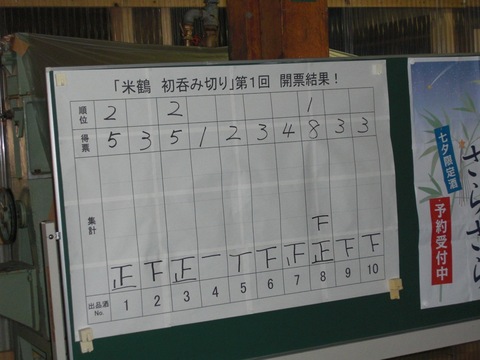 「米鶴 初呑み切り」第1回 開票結果！
順位 2 2 1
得票 5 3 5 1 2 3 4 8 3 3
集計 正 下 正 一 丅 下 正 正下 下 下
出品酒No. 1 2 3 4 5 6 7 8 9 10
七夕限定酒
さらさら
予約受付中